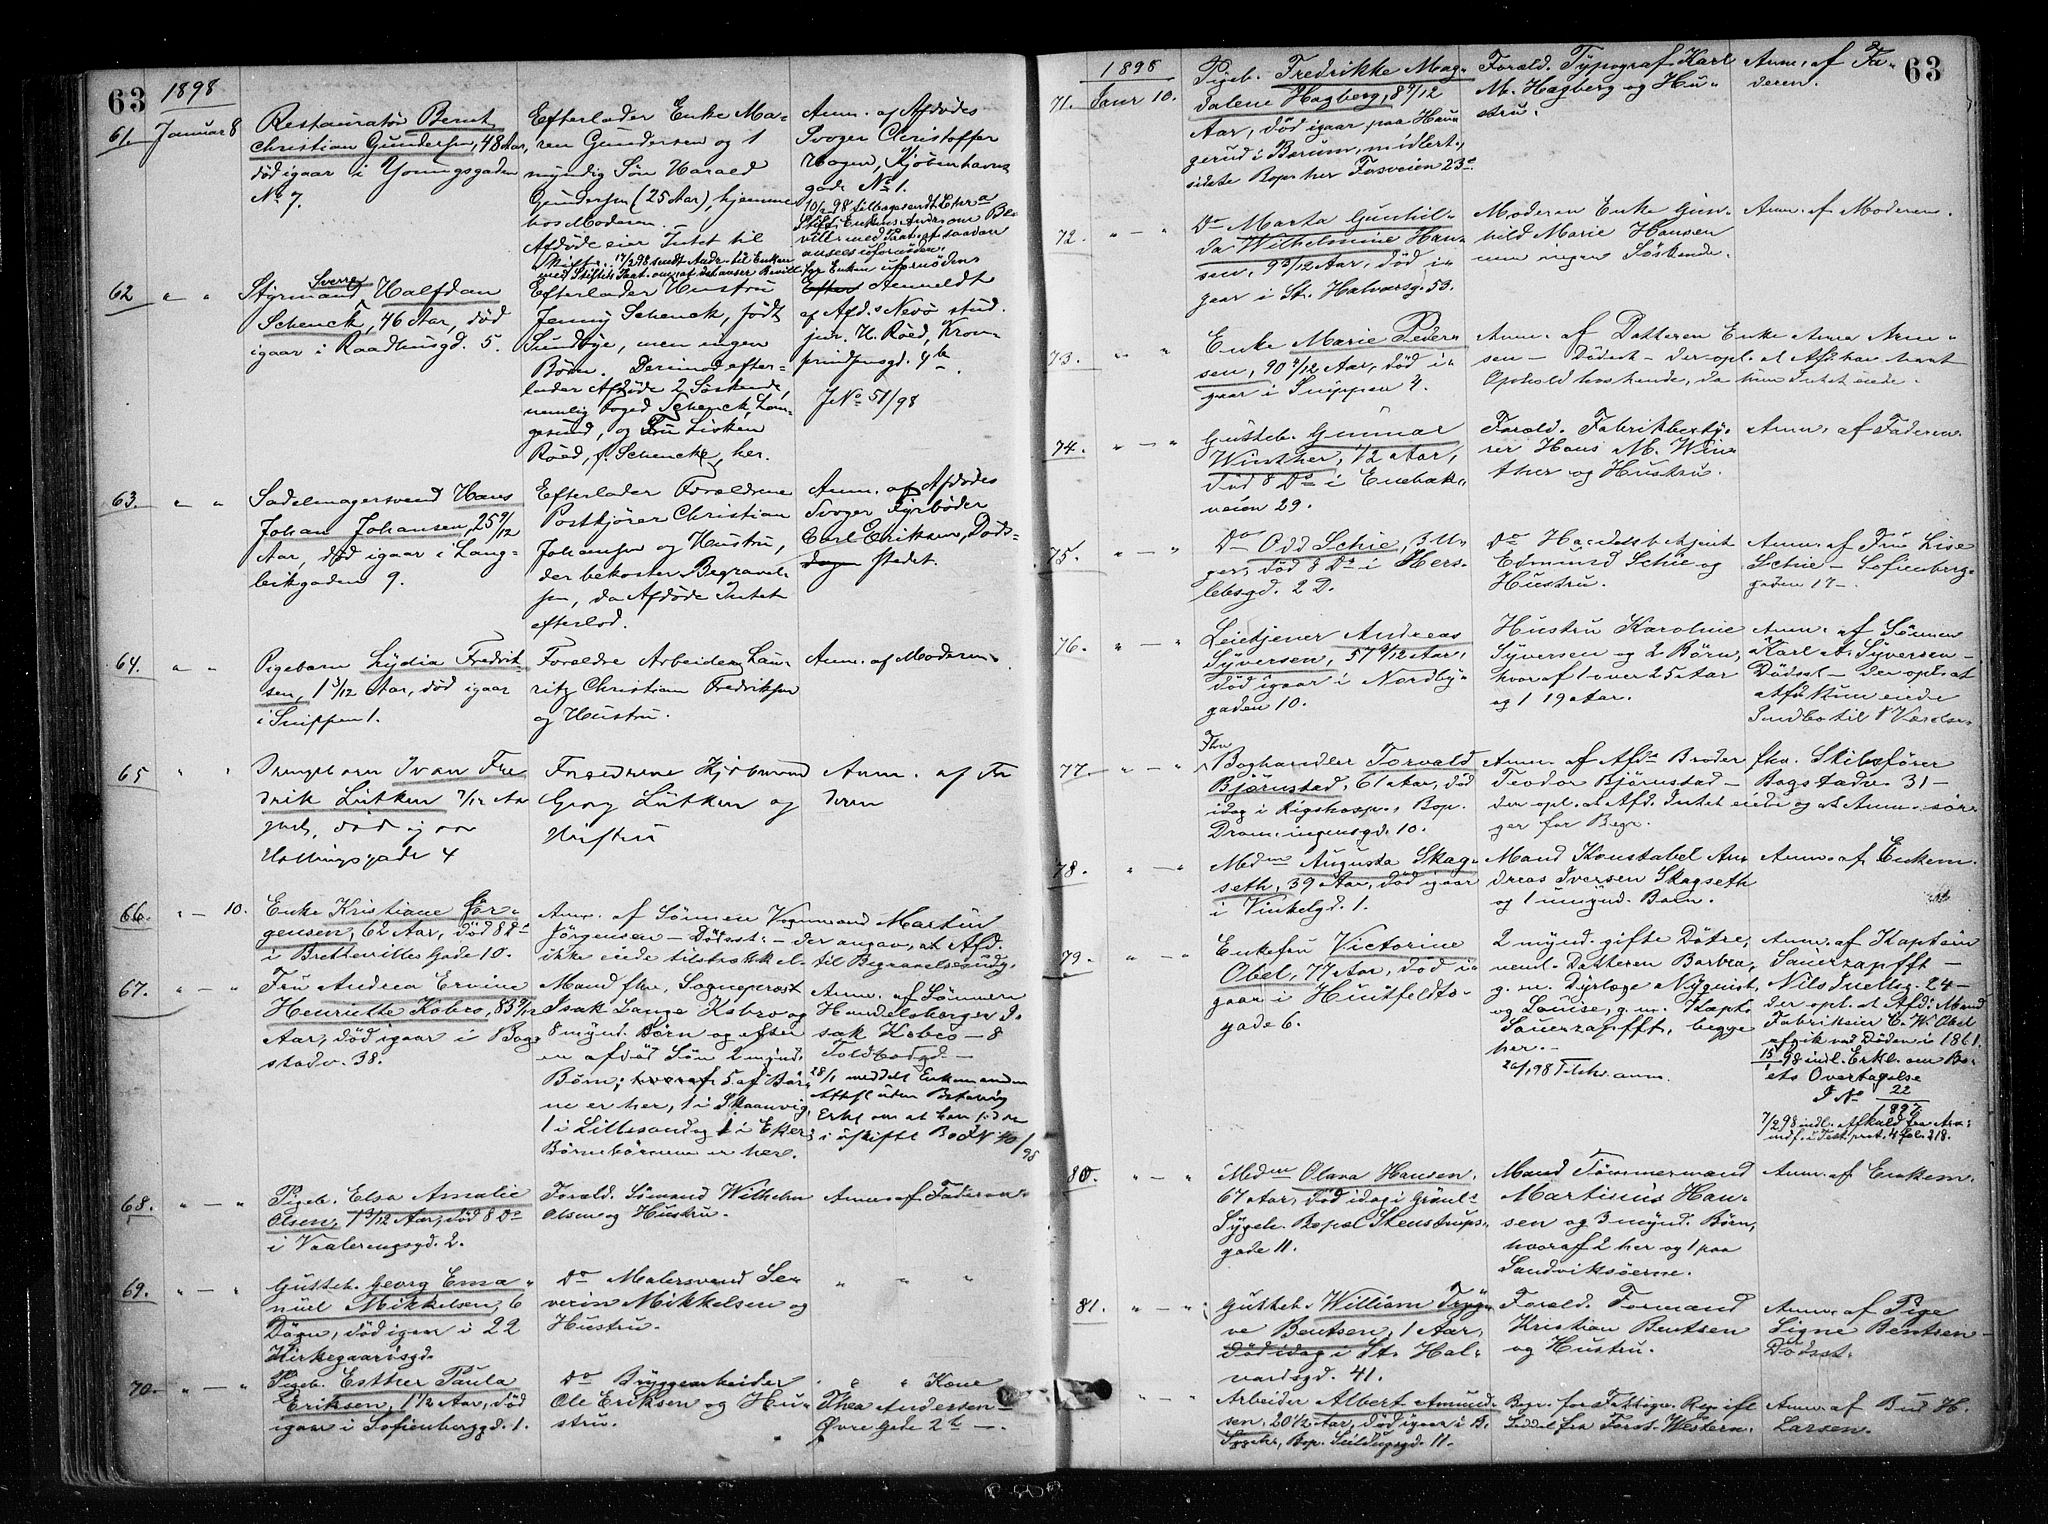 63
1898
61. Januar 8
Restauratör Bernt
Christian Gundersen, 48 Aar,
död igaar i Youngsgaden
No 7.
Efterlader Enke Ma-
ren Gundersen og 1
myndig Sön Harald
Gundersen (25 Aar), hjemme
hos Moderen.
Afdöde eier Intet til
Skifte.
Anm. af Afdödes
Svoger Christoffer
Hagen, Kjöbenhavns
gade No 1.
62 " "
Styrmand Sverre Halfdan
Schenck, 46 Aar, död
igaar i Raadhusgd. 5.
Efterlader Hustru
Jenny Schenck, födt
Sundbye, men ingen
Börn. Derimod efter-
lader Afdöde 2 Söskende,
nemlig Foged Schenck, Lan-
gesund, og Fru Lisken
Röed, f. Schenck, her.
Anmeldt
af Afd.s Nevö stud.
jur. H. Röed, Kron-
prindsensgd. 4 b.
J No 51/98
63. " "
Sadelmagersvend Hans
Johan Johansen, 25 9/12
Aar, död igaar i Lang-
leikgaden 9.
Efterlader Forældrene
Postkjörer Christian
Johansen og Hustru,
der bekoster Begravel-
sen, da Afdöde Intet
efterlod.
Anm. af Afdödes
Svoger Fyrböder
Carl Eriksen, Döds-
stedet.
64. " "
Pigebarn Lydia Fredrik-
sen, 1 3/12 Aar, död igaar
i Snippen 1.
Forældre Arbeider Lau-
ritz Christian Fredriksen
og Hustru.
Anm. af Moderen.
65 " "
Drengebarn Ivan Fre
drik Lütken 7/12 Aar
gml., död igaar
Forældrene Kjöbmand
Georg Lütken og
Hustru
Anm. af Fa
deren
66. " - 10.
Enke Kristiane Jör-
gensen, 62 Aar, död 8 Ds
i Bretterilles Gade 10.
Anm. af Sönnen Vognmand Martin
Jörgensen - Dödsst. - der angav, at Afd.
ikke eiede tilstrækkel. til Begravelsesudg.
67. " - "
Fru Andrea Ervine
Henriette Kobro, 83 9/12
Aar, död igaar i Bog-
stadv. 38.
Mand fhv. Sogneprest
Isak Lange Kobro og
8 mynd. Börn og efter
en afdöd Sön 2 mynd.
Börn; hvoraf 5 af Bör-
ne er her, 1 i Skaanvig,
1 i Lillesand og 1 i Eker;
Börnebörnene er her.
Anm. af Sönnen
Handelsborger I-
sak Kobro - 8
Toldbodgd. -
28/1 meddelt Enkemanden
68. " - "
Pigeb. Elsa Amalie
Olsen, 1 9/12 Aar, död 8 Ds
i Vaalerengsgd. 2.
Foræld. Sömand Wilhelm
Olsen og Hustru.
Anm. af Faderen
69. " - "
Gutteb. Georg Ema-
nuel Mikkelsen, 6
Dögn, död igaar i 22
Kirkegaardsgd.
Do Malersvend Se-
verin Mikkelsen og
Hustru.
" " "
70. " - "
Pigeb. Esther Paula
Eriksen, 1 1/2 Aar, död
igaar i Sofienberggd. 1.
Do Bryggearbeider
Ole Eriksen og Hu-
stru.
" " Kone
Thea Andersen
Övre Gade 2 b -.
63
1898
71. Janr 10.
Pigeb. Fredrikke Mag-
dalene Hagberg, 8 9/12
Aar, död igaar paa Hau
gerud i Bærum, midlert.,
sidste Bop. her Fosveien 23 c.
Foræld. Typograf Karl
M. Hagberg og Hu-
stru.
Anm. af Fa-
deren.
72. " - "
Do Marta Gunhil-
da Wilhelmine Han-
sen, 9 9/12 Aar, död i-
gaar i St. Halvardsg. 53.
Moderen Enke Gun-
hild Marie Hansen
men ingen Söskende.
Anm. af Moderen.
73. " "
Enke Marie Peder-
sen, 90 4/12 Aar, död i-
gaar i Snippen 4.
Anm. af Datteren Enke Anna Arne-
sen - Dödsst. - der opl. at Afd. har havt
Ophold hos hende, da hun Intet eiede.
74. " - "
Gutteb. Gunnar
Winther, 1/2 Aar,
död 8 Ds i Enebak-
veien 29.
Foræld. Fabrikbesty-
rer Hans M. Win-
ther og Hustru.
Anm. af Faderen.
75. " - "
Do Odd Schie, 3 U-
ger, död 8 Ds i Hers-
lebsgd. 2 D.
Do Handelsbetjent
Edmund Schie og
Hustru.
Anm. af Frue Lise
Schie - Sofienberg-
gaden 17 -
76. " - "
Leietjener Andreas
Syversen, 57 9/12 Aar,
död igaar i Nordby-
gaden 10.
Hustru Karoline
Syversen og 2 Börn,
hvoraf 1 over 25 Aar
og 1 19 Aar.
Anm. af Sönnen
Karl A. Syversen -
Dödsst. - der opl. at
Afd. kun eiede
Indbo til
77. " - "
Fhv
Boghandler Torvald
Björnstad, 61 Aar, död
idag i Rigshosp., Bop.
Drammensgd. 10.
Anm. af Afds Broder fhv. Skibsförer
Teodor Björnstad - Bogstadv. 31 -
der opl. at Afd. Intet eiede og at Anm. sör-
ger for Begr.
78. " - "
Medm Augusta Skag-
seth, 39 Aar, död igaar
i Vinkelgd. 1.
Mand Konstabel An
dreas Iversen Skagseth
og 1 umynd. Barn.
Anm. af Enkem.
79. " - "
Enkefru Victorine
Obel, 77 Aar, död i-
gaar i Huitfeldts-
gade 6.
2 mynd. gifte Dötre,
neml. Datteren Barbra,
g. m. Dyrlæge Nyquist,
og Louise, g. m. Kapt.
Sauerzapfft, begge
her. -
20/1 98 Telehr. anm.
Anm. af Kaptein
Sauerzapfft -
Nils Juelsg. 24 -
der opl. at Afd. Mand
Fabrikeier C. W. Obel
afgik ved Döden i 1861.
15/1 98 indl. Erkl. om Bo-
ets Overtagelse
J No 22/1897
80. " - "
Medm Olava Hansen,
67 Aar, död idag i Grönl.s
Sygeh. Bopæl Stenstrups-
gade 11.
Mand Tömmermand
Martinius Han-
sen og 3 mynd. Börn,
hvoraf 2 her og 1 paa
Sandviksöerne.
Anm. af Enkem.
81. " - "
Gutteb. William Tryg-
ve Bentsen, 1 Aar,
död idag i St. Hal-
vardsgd. 41.
Foræld. Formand
Kristian Bentsen
og Hustru.
Anm. af Pige
Signe Bentsen -
Dödsst.
" - "
Arbeider Albert Amund-
sen, 20 1/2 Aar, död igaar i B.
Sygeh., Bop. Seildugsgd. 11.
Begr. for Fattigv. Regn. ifl.
Seddel fra Forst. Western.
Anm. af Bud H.
Larsen.